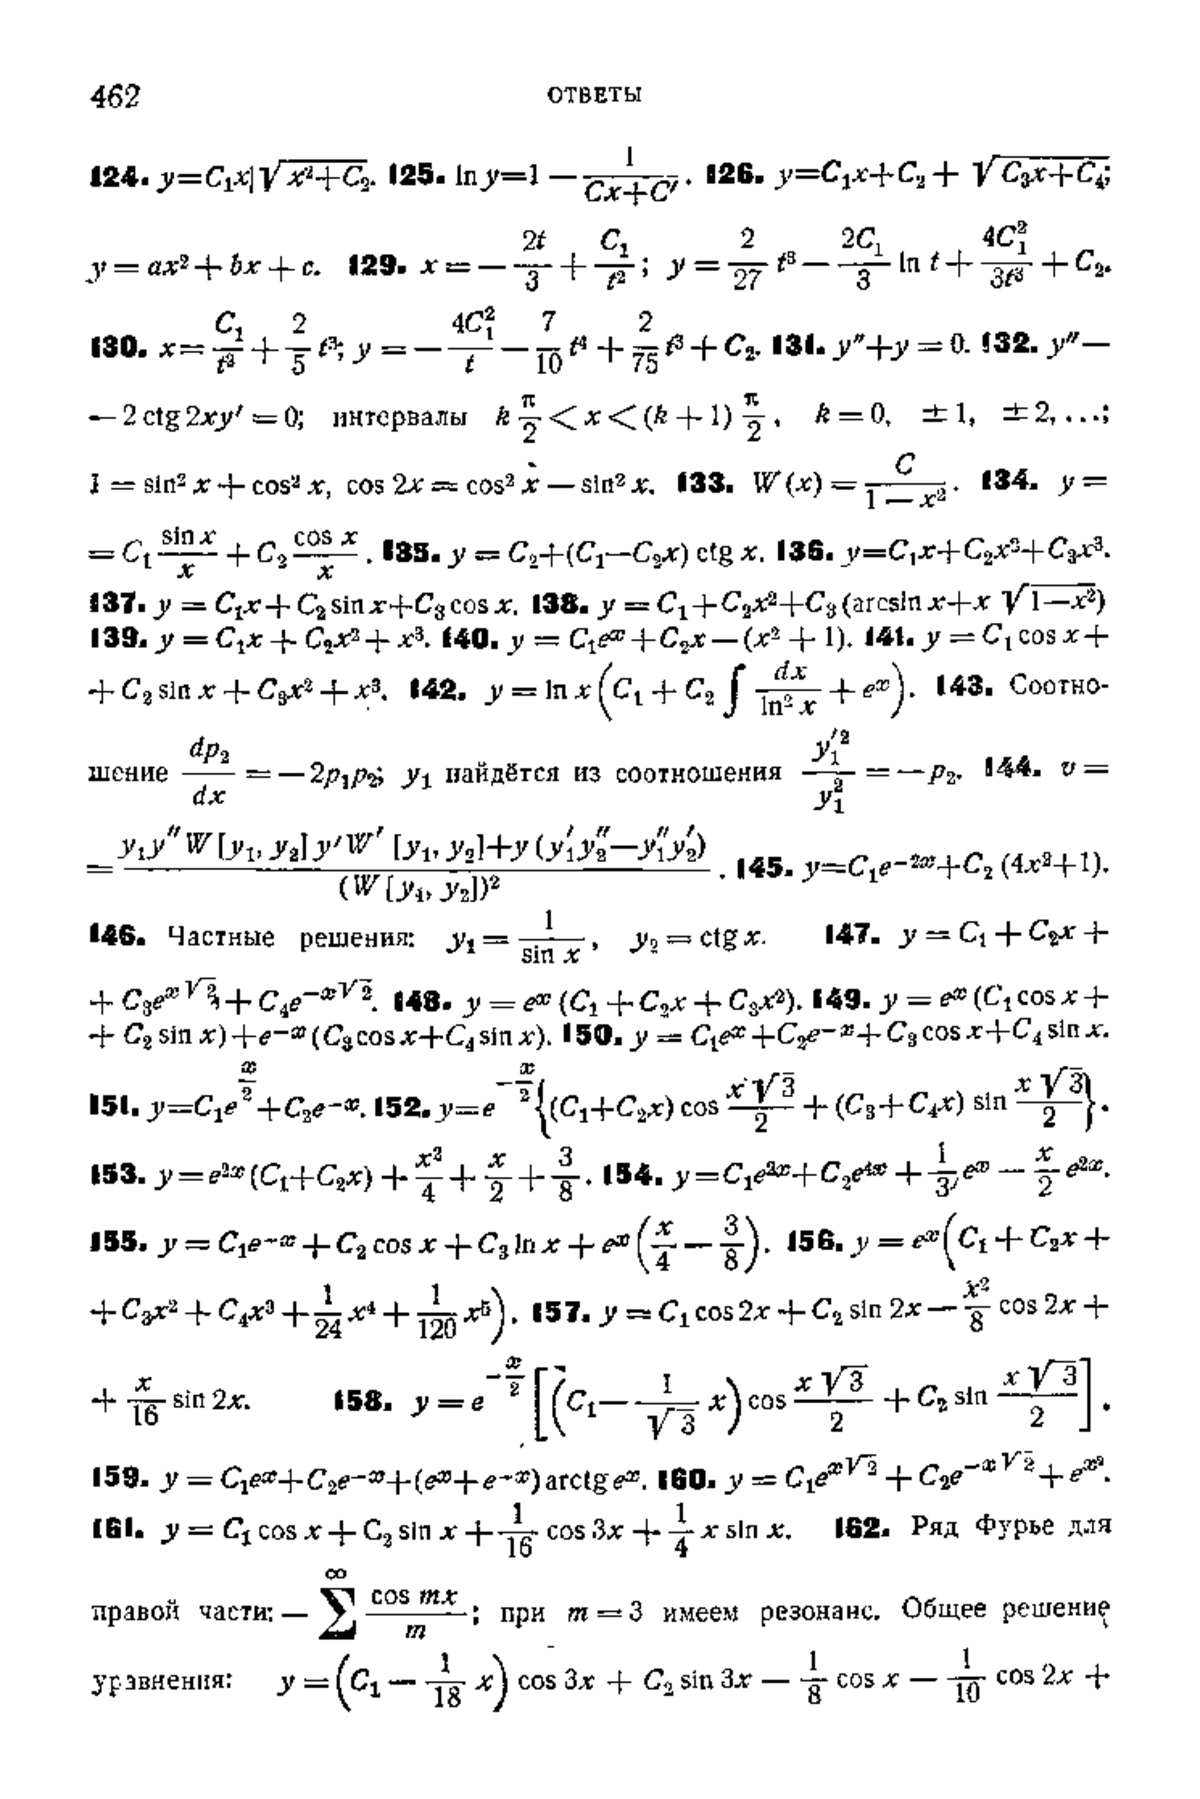 462 ОТВЕТЫ
124. y=C₁x|√(x²+C₂). 125. ln y=1 − 1/(Cx+C′). 126. y=C₁x+C₂ + √(C₃x+C₄);
y = ax² + bx + c. 129. x = − 2t/3 + C₁/t²; y = 2/27 t³ − 2C₁/3 ln t + 4C₁²/3t³ + C₂.
130. x= C₁/t² + 2/5 t³; y = − 4C₁²/t − 7/10 t⁴ + 2/75 t³ + C₂. 131. y″+y = 0. 132. y″—
— 2 ctg 2xy′ = 0; интервалы k π/2 < x < (k + 1) π/2, k = 0, ± 1, ± 2, ...;
1 = sin² x + cos² x, cos 2x = cos² x — sin² x. 133. W (x) = C/(1 — x²). 134. y =
= C₁ sin x/x + C₂ cos x/x. 135. y = C₂+(C₁—C₂x) ctg x. 136. y=C₁x+C₂x²+C₃x³.
137. y = C₁x + C₂ sin x+C₃ cos x. 138. y = C₁+C₂x²+C₃ (arcsin x+x √(1—x²))
139. y = C₁x + C₂x² + x³. 140. y = C₁eˣ+C₂x — (x² + 1). 141. y = C₁ cos x +
+ C₂ sin x + C₃x² + x³. 142. y = ln x (C₁ + C₂ ∫ dx/ln² x + eˣ). 143. Соотно-
шение dp₂/dx = — 2p₁p₂; y₁ найдётся из соотношения y₁′²/y₁² = — p₂. 144. v =
= (y₁y″ W [y₁, y₂] y′W′ [y₁, y₂]+y (y₁′y₂″—y₁″y₂′))/(W [y₁, y₂])². 145. y=C₁e⁻²ˣ+C₂ (4x²+1).
146. Частные решения: y₁ = 1/sin x, y₂ = ctg x. 147. y = C₁ + C₂x +
+ C₃e^(x√2) + C₄e^(−x√2). 148. y = eˣ (C₁ + C₂x + C₃x²). 149. y = eˣ (C₁ cos x +
+ C₂ sin x) + e⁻ˣ (C₃ cos x+C₄ sin x). 150. y = C₁eˣ +C₂e⁻ˣ + C₃ cos x+C₄ sin x.
151. y=C₁e^(x/2)+C₂e⁻ˣ. 152. y=e^(−x/2) {(C₁+C₂x) cos x√3/2 + (C₃+C₄x) sin x√3/2}.
153. y = e²ˣ (C₁+C₂x) + x²/4 + x/2 + 3/8. 154. y=C₁e²ˣ+C₂e⁴ˣ + 1/3 eˣ — x/2 e²ˣ.
155. y = C₁e⁻ˣ + C₂ cos x + C₃ ln x + eˣ (x/4 — 3/8). 156. y = eˣ (C₁ + C₂x +
+ C₃x² + C₄x³ + 1/24 x⁴ + 1/120 x⁵). 157. y = C₁ cos 2x + C₂ sin 2x — x²/8 cos 2x +
+ x/16 sin 2x. 158. y = e^(−x/2) [(C₁— 1/√3 x) cos x√3/2 + C₂ sin x√3/2].
159. y = C₁eˣ+C₂e⁻ˣ+(eˣ+e⁻ˣ) arctg eˣ. 160. y = C₁e^(x√2) + C₂e^(−x√2) + e^(x²).
161. y = C₁ cos x + C₂ sin x + 1/16 cos 3x + 1/4 x sin x. 162. Ряд Фурье для
правой части: — ∞∑ cos mx/m; при m = 3 имеем резонанс. Общее решение
уравнения: y = (C₁ — 1/18 x) cos 3x + C₂ sin 3x — 1/8 cos x — 1/10 cos 2x +